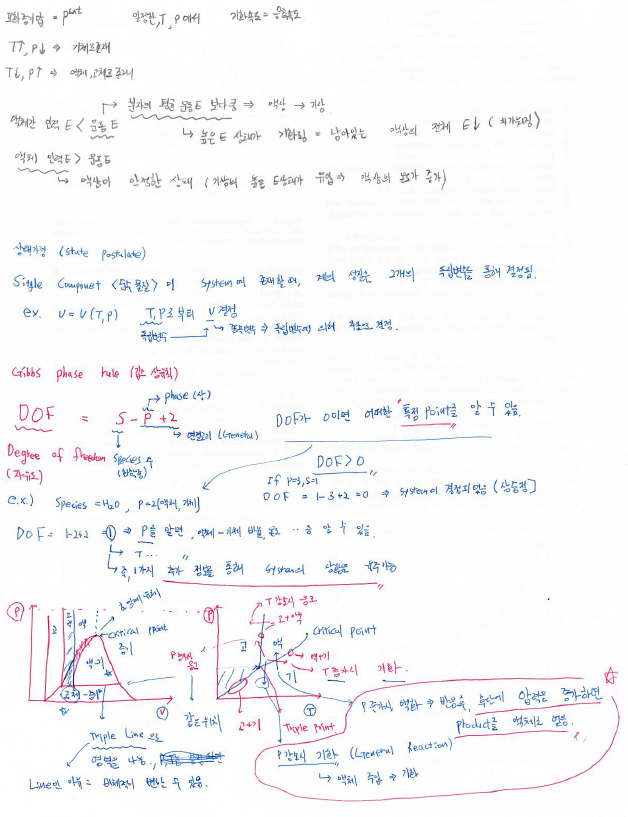 포화증기압 = P^sat 일정한 T, P에서 기화속도 = 응축속도
T↑, P↓ → 기체로 존재
T↓, P↑ → 액체, 고체로 존재
분자의 평균 운동E 보다 큼 ⇒ 액상 → 기상
액체간 인력 E < 운동 E
높은 E 상태가 기화됨 = 남아있는 액상의 전체 E↓
액체 인력E > 운동E
액상이 안정한 상태 (기상의 높은 E상태가 유입 ⇒ 액상의 증가)
상태가정 (state postulate)
Single Componet <단독물질> 이 System에 존재할 때, 계의 성질은 2개의 독립변수를 통해 결정됨.
ex. U = U(T, P) T, P로부터 U 결정
독립변수 종속변수 ⇒ 독립변수에 의해 결정.
Gibbs phase rule (깁스 상규칙)
phase (상)
DOF = S - P + 2 DOF가 0이면 어떠한 "특정 Point를 알 수 있음.
(General)
Degree of freedom Species 수 DOF > 0
(자유도) if P=3, S=1
DOF = 1-3+2 = 0 ⇒ System이 결정되있음 (삼중점)
e.x.) Species = H2O, P=2(액체, 기체)
DOF = 1-2+2 = 1 ⇒ P를 알면, 액체-기체 비율, 등 알 수 있음.
T ...
즉, 1가지 추가 정보를 통해 System의 상태를
P
Critical point
증기
고 액
액-기
고체-증기
V
Triple Line 으로
영역을 나눔.
Line인 이유 = 변하는 수 있음.
P
T 감소시 응고
고+액
Critical point
고 액
액+기
기
T 증가시 기화.
T
고+기
Triple Point
P 증가시 액화 → 반응 후, 압력을 증가하면
Product를 액체로 얻음.
P 감소시 기화 (General Reaction)
액체 주입 → 기화